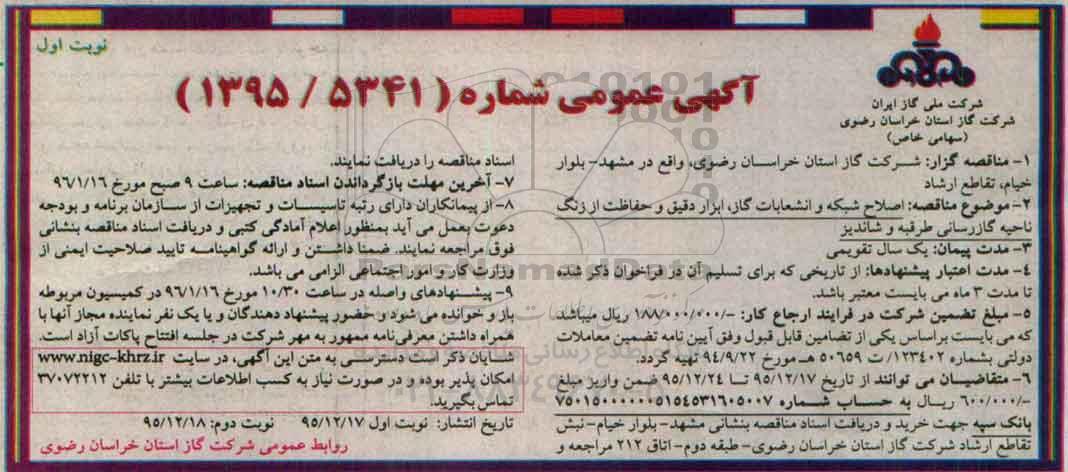 نوبت اول
شرکت ملی گاز ایران
شرکت گاز استان خراسان رضوی
(سهامی خاص)
آگهی عمومی شماره ( ۵۳۴۱ / ۱۳۹۵ )
۱- مناقصه گزار: شرکت گاز استان خراسان رضوی، واقع در مشهد- بلوار
خیام، تقاطع ارشاد
۲- موضوع مناقصه: اصلاح شبکه و انشعابات گاز، ابزار دقیق و حفاظت از زنگ
ناحیه گازرسانی طرقبه و شاندیز
۳- مدت پیمان: یک سال تقویمی
۴- مدت اعتبار پیشنهادها: از تاریخی که برای تسلیم آن در فراخوان ذکر شده
تا مدت ۳ ماه می بایست معتبر باشد.
۵- مبلغ تضمین شرکت در فرایند ارجاع کار: -/۱۸۸/۰۰۰/۰۰۰ ریال میباشد
که می بایست براساس یکی از تضامین قابل قبول وفق آیین نامه تضمین معاملات
دولتی بشماره ۱۲۳۴۰۲/ت ۵۰۶۵۹ هـ مورخ ۹۴/۹/۲۲ تهیه گردد.
۶- متقاضیان می توانند از تاریخ ۹۵/۱۲/۱۷ تا ۹۵/۱۲/۲۴ ضمن واریز مبلغ
-/۶۰۰/۰۰۰ ریال به حساب شماره
بانک سپه جهت خرید و دریافت اسناد مناقصه بنشانی مشهد- بلوار خیام- نبش
تقاطع ارشاد شرکت گاز استان خراسان رضوی- طبقه دوم- اتاق ۲۱۲ مراجعه و
اسناد مناقصه را دریافت نمایند.
۷- آخرین مهلت بازگرداندن اسناد مناقصه: ساعت ۹ صبح مورخ ۹۶/۱/۱۶
۸- از پیمانکاران دارای رتبه تاسیسات و تجهیزات از سازمان برنامه و بودجه
دعوت بعمل می آید بمنظور اعلام آمادگی کتبی و دریافت اسناد مناقصه بنشانی
فوق مراجعه نمایند. ضمنا داشتن و ارائه گواهینامه تایید صلاحیت ایمنی از
وزارت کار و امور اجتماعی الزامی می باشد.
۹- پیشنهادهای واصله در ساعت ۱۰/۳۰ مورخ ۹۶/۱/۱۶ در کمیسیون مربوطه
باز و خوانده می شود و حضور پیشنهاد دهندگان و یا یک نفر نماینده مجاز آنها با
همراه داشتن معرفی نامه ممهور به مهر شرکت در جلسه افتتاح پاکات آزاد است.
شایان ذکر است دسترسی به متن این آگهی، در سایت www.nigc-khrz.ir
امکان پذیر بوده و در صورت نیاز به کسب اطلاعات بیشتر با تلفن ۳۷۰۷۲۲۱۲
تماس بگیرید.
تاریخ انتشار: نوبت اول ۹۵/۱۲/۱۷ نوبت دوم: ۹۵/۱۲/۱۸
روابط عمومی شرکت گاز استان خراسان رضوی